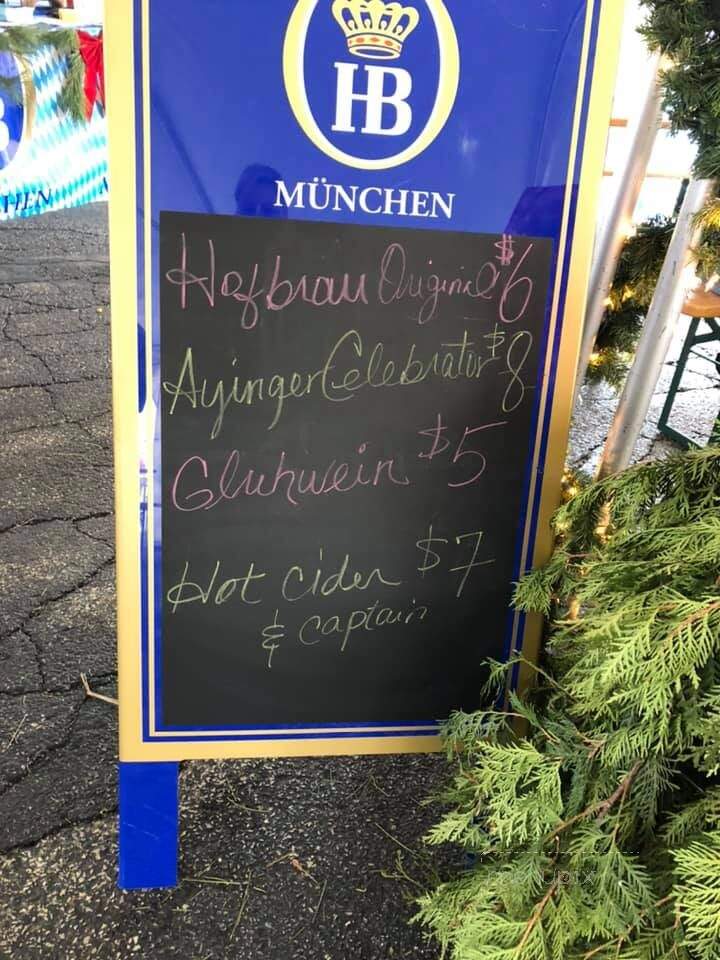 HB
MÜNCHEN
HEN
Hofbrau Original $6
Ayinger Celebrator $8
Gluhwein $5
Hot cider $7
& captain